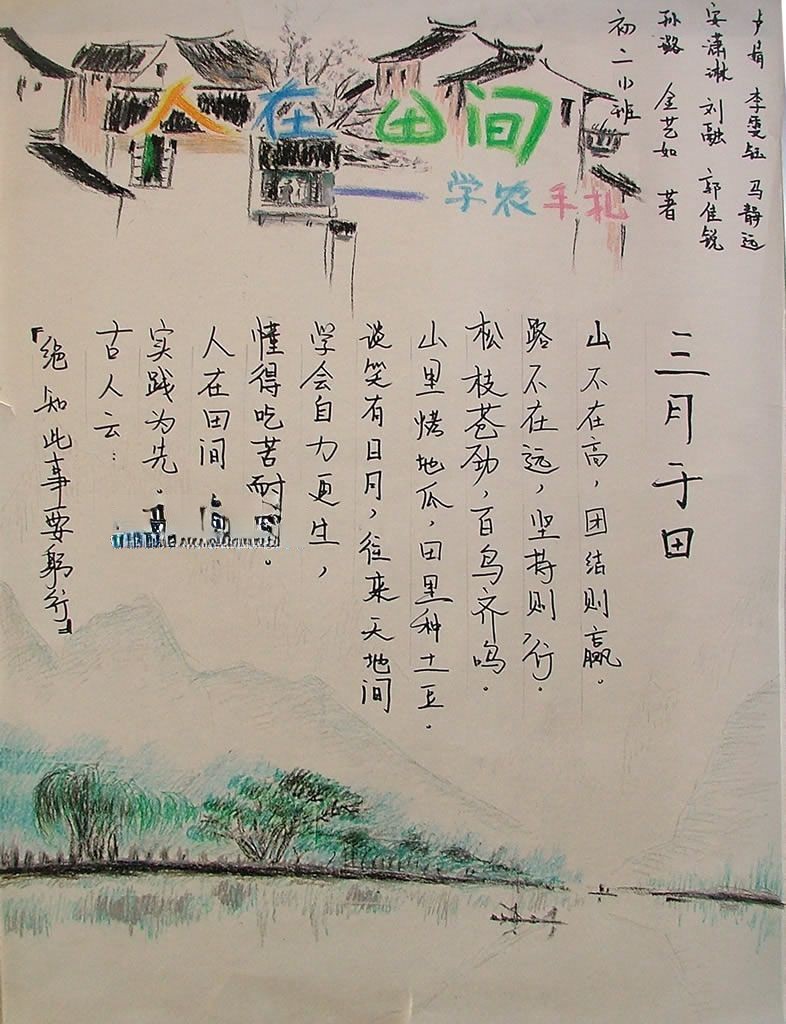 人在田间
——学农手札
卢娟 李雯钰 马静远
安潇琳 刘融 郭佳锐
孙璐 金艺如 著
初二小班
三月于田
山不在高，团结则赢。
路不在远，坚持则行。
松枝苍劲，百鸟齐鸣。
山里烤地瓜，田里种土豆。
谈笑有日月，往来天地间
学会自力更生，
懂得吃苦耐。
人在田间
实践为先。
古人云：
『绝知此事要躬行』